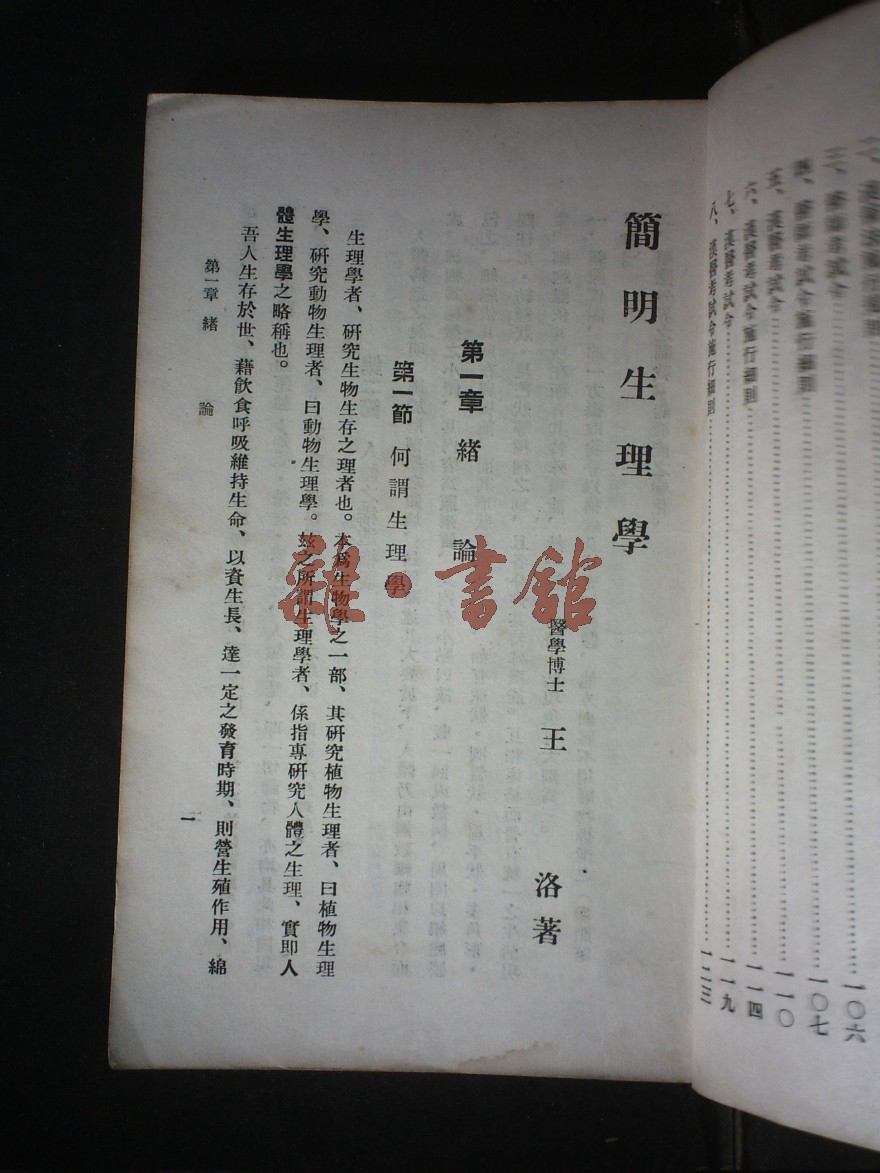 六、漢醫考試令施行細則……一一四
七、漢醫考試令……一一九
八、漢醫考試令施行細則……一二三
簡明生理學
醫學博士 王洛著
第一章 緒論
第一節 何謂生理學
生理學者、研究生物生存之理者也。本為生物學之一部、其研究植物生理者、曰植物生理
學、研究動物生理者、曰動物生理學。茲之所謂生理學者、係指專研究人體之生理、實即人
體生理學之略稱也。
吾人生存於世、藉飲食呼吸維持生命、以資生長、達一定之發育時期、則營生殖作用、綿
第一章 緒論
一
雜·書館